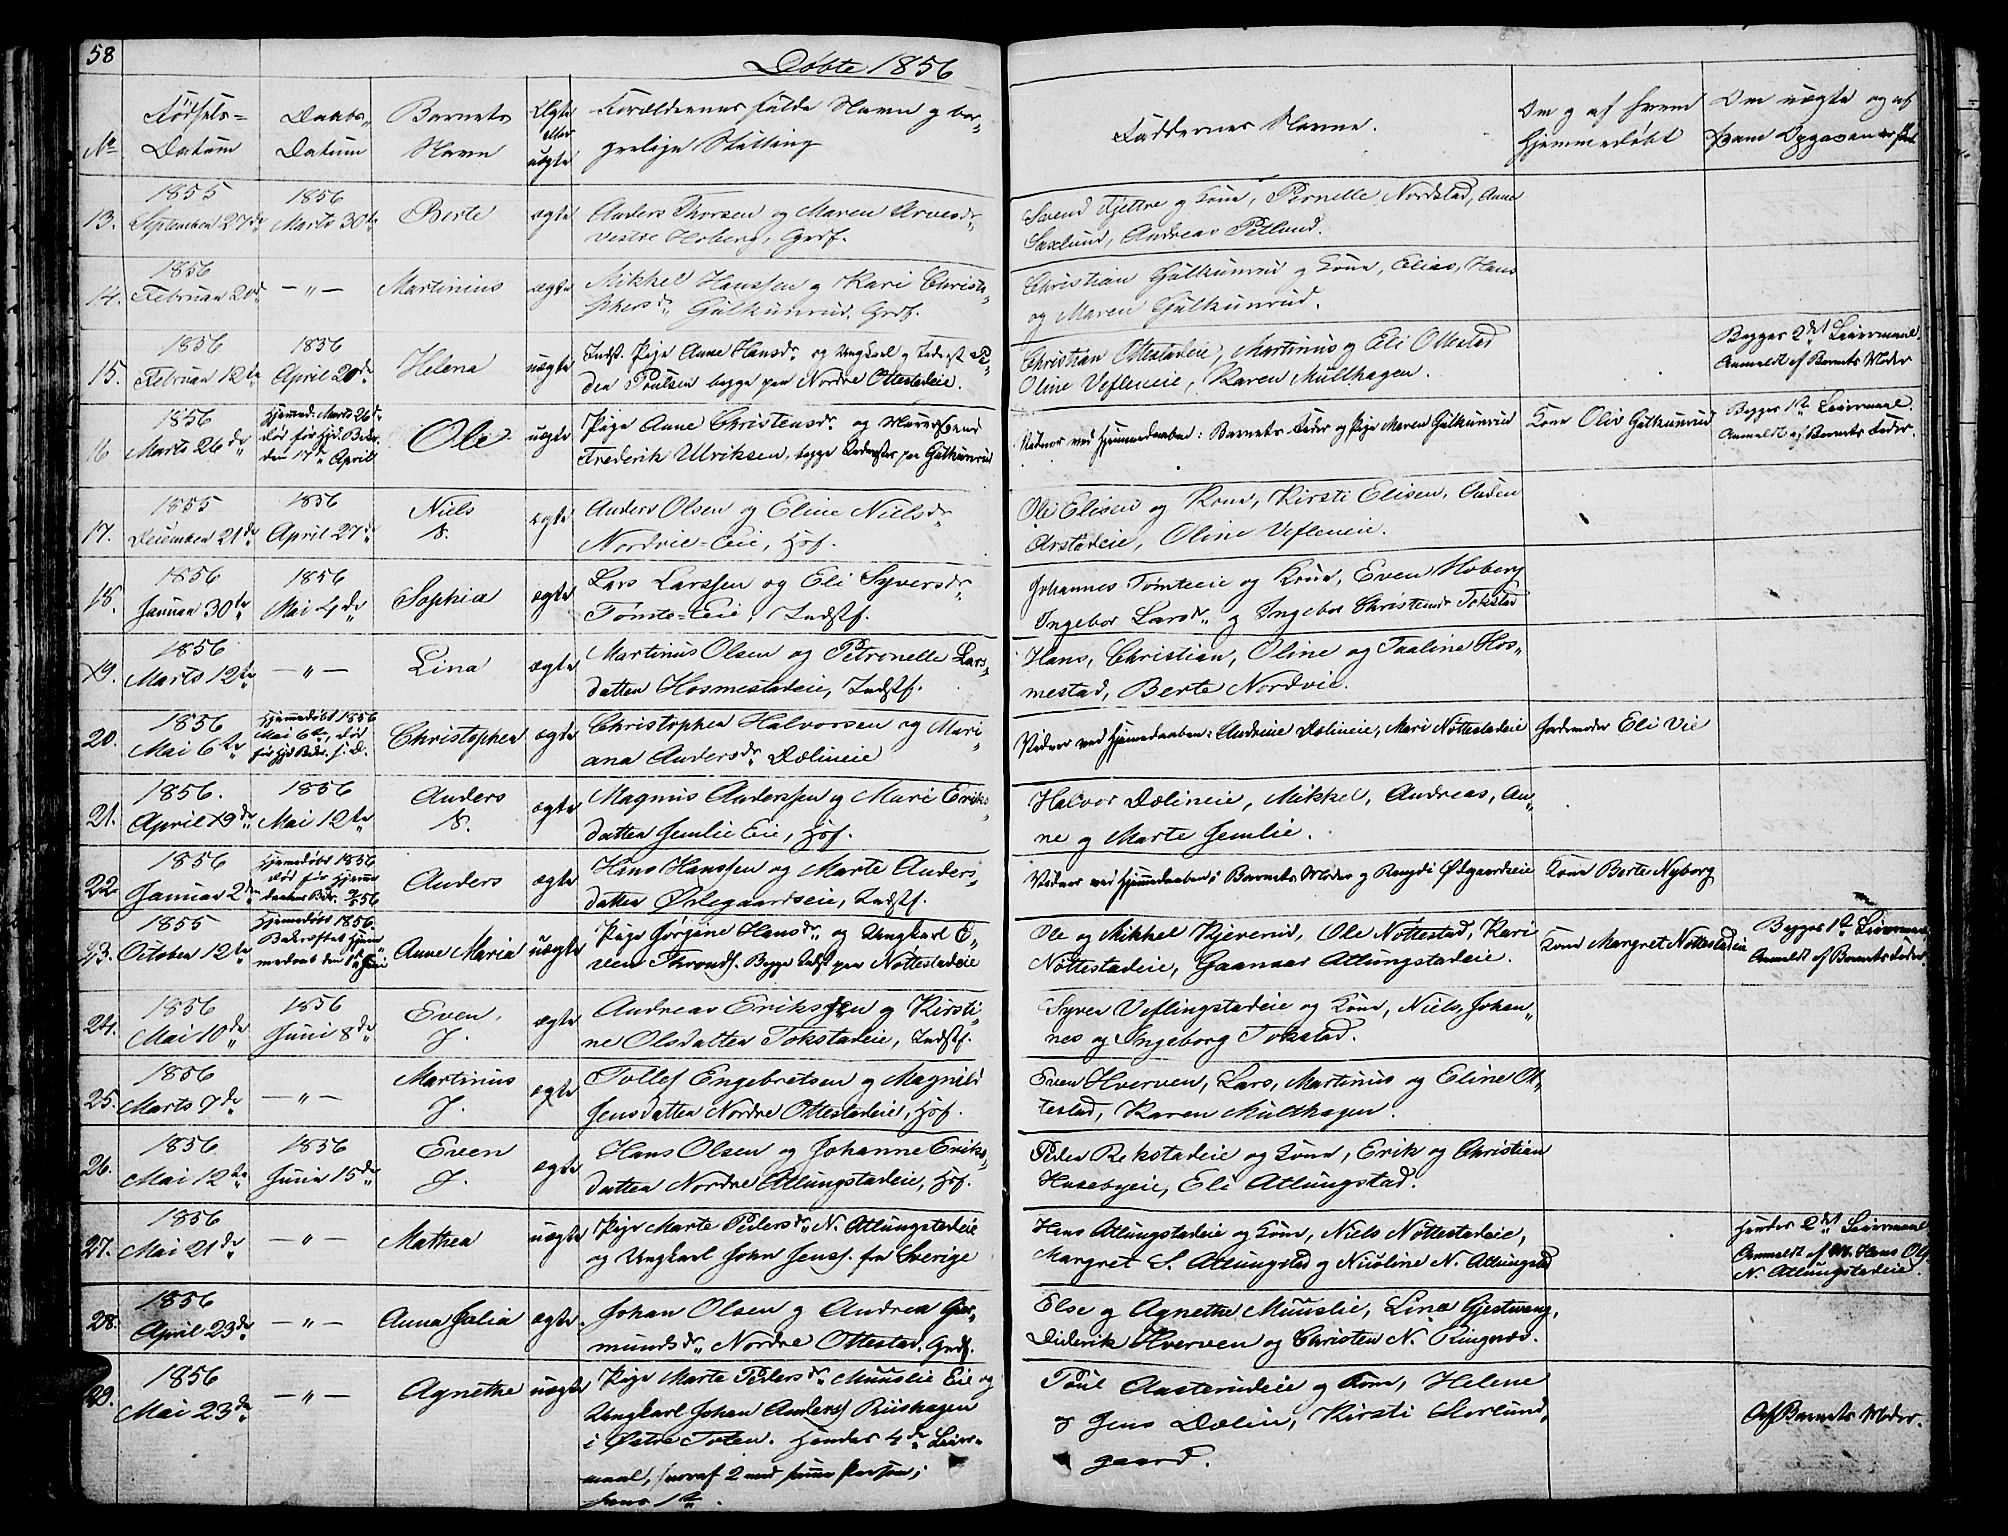 58
Døbte 1856
No
Fødsels=
Datum
Daabs„
Datum
Barnets
Navn
Ægte
eller
uægte
Forældrenes fulde Navn og bor„
gerlige Stilling
Faddernes Navne.
Om og af hvem
hjemmedøbt
Om uægte og af
hvem Opgaven er skeet
13.
1855
September 27de
1856
Marts 30te
Berte
ægte
Anders Thorsen og Maren Arvesdr.
Vestre Hoberg, Grdf.
Svend Kjettre og Kone, Pernelle Nordstad, Anne
Saxlund, Andreas Petlund.
14.
1856
Februar 20de
— „ —
Martinius
ægte
Mikkel Hanssen og Kari Christo„
phersdr. Gulkunrud, Grdf.
Christian Gulkunrud og Kone, Elias, Hans
og Maren Gulkunrud.
15.
1856
Februar 12te
1856
April 20de
Helena
uægte
Indst. Pige Anne Hansdr. og Ungkarl og Inderst Pe„
der Poulsen begge paa Nordre Ottestadeie.
Christian Ottestadeie, Martinus og Eli Ottestad
Oline Vefleneie, Karen Multhagen.
Begges 2det Leiermaal.
Anmeldt af Barnets Moder
16
1856
Marts 26de
Hjemmed. Marts 26de
død før Hjd. Bekr.
den 17de April
Ole
uægte
Pige Anne Christensdr. og
Frederik Ulriksen, begge Inderster paa Gulkunrud
Vidner ved Hjemmedaaben: Barnets Fader og Pige Maren Gulkunrud
Kone Oliv Gulkunrud
Begges 1te Leiermaal.
Anmeldt af Barnets Fader.
17.
1855
December 21de
1856
April 27de
Niels
N.
ægte
Anders Olsen og Eline Nielsdr.
Nordvie-Eie, Hsf.
Ole Elisen og Kone, Kirsti Elisen, Anders
Aarstadeie, Oline Vefleneie.
18.
1856
Januar 30te
1856
Mai 4de
Sophia
ægte
Lars Larssen og Eli Syversdr.
Tømte-Eie, Indstf.
Johannes Tømteeie og Kone, Even Hoberg
Ingebor Larsdr. og Ingebor Christensdr Tokstad
19.
1856
Marts 12te
— „ —
Lina
ægte
Martinus Olsen og Petronelle Lars„
datter Hosmestadeie, Indstf.
Hans, Christian, Oline og Paaline Hos„
mestad, Berte Nordvie.
20.
1856
Mai 6te
Hjemmedøbt 1856
Mai 6te, død
før Hjd. Bekr. s. D.
Christopher
ægte
Christopher Halvorsen og Mari„
ana Andersdr. Dælineie
Vidner ved Hjemmedaaben: Andrine Dælineie, Mari Nøttestadeie
Jordemoder Eli Vie
21.
1856.
April 19de
1856
Mai 12te
Anders
N.
ægte
Magnus Anderssen og Mari Eriks„
datter Jemlie Eie, Hsf.
Halvor Dælineie, Mikkel, Andreas, An„
ne og Marte Jemlie.
22
1856
Januar 2den
Hjemmedøbt 1856
død før Hjemme
daabens Bekr.
Anders
ægte
Hans Hanssen og Marte Anders„
datter Ødegaardseie, Indstf.
Vidner ved Hjemmedaaben: Barnets Moder og Rangdi Ødgaardseie
Kone Berte Nyborg
23.
1855
October 12te
Hjemmedøbt 1856.
Bekræftet Hjem„
medaab den 1te Juni
Anne Maria
uægte
Pige Jørgine Hansdr. og Ungkarl E„
ven Throndsf. Begge Indst paa Nøttestadeie
Ole og Mikkel Kjeverud, Ole Nøttestad, Kari
Nøttestadeie, Gunnar Atlungstadeie.
Kone Margret Nøttestadeie
Begges 1te Leiermaal
Anmeldt af Barnets Fader.
24.
1856
Mai 10de
1856
Juni 8de
Even.
J.
ægte
Andreas Eriksen og Kirsti„
ne Olsdatter Tokstadeie, Indstf.
Syver Veflingstadeie og Kone, Niels, Johan„
nes og Ingeborg Tokstad.
25.
1856
Marts 7de
— „ —
Martinus
J.
ægte
Tollef Engebretsen og Magnild
Jensdatter Nordre Ottestadeie, Hsf.
Even Hverven, Lars, Martinus og Eline Ot„
testad, Karen Multhagen.
26.
1856
Mai 12te
1856
Juni 15de
Even
J.
ægte
Hans Olsen og Johanne Eriks„
datter Nordre Atlungstadeie, Hsf.
Peder Rekstadeie og Kone, Erik og Christian
Husebyeie, Eli Atlungstad.
27.
1856
Mai 21de
— „ —
Mathea
uægte
Pige Marte Pedersdr. N. Atlungstadeie
og Ungkarl John Jensf. fra Sverige
Hans Atlungstadeie og Kone, Niels Nøttestadeie,
Margret S. Atlungstad og Nicoline N. Atlungstad
Hendes 2det Leiermaal
Anmeldt af M. Hans Ols
N. Atlungstadeie.
28.
1856
April 23de
— „ —
Anna Julia
ægte.
Johan Olsen og Andrea Gur„
mundsdr. Nordre Ottestad, Grdf.
Else og Agnethe Muuslie, Lina Gjestvang,
Diderik Hverven og Christen N. Ringnæs.
29.
1856
Mai 23de
— „ —
Agnethe
uægte
Pige Marte Pedersdr. Muuslie Eie og
Ungkarl Johan Andersf Riishagen
i Østre Toten. Hendes 4de Leier„
maal, hvoraf 2 med samme Person;
hans 1te.
Poul Aasterudeie og Kone, Helene
og Jens Dælin, Kirsti Storlund„
gaard.
Af Barnets Moder.